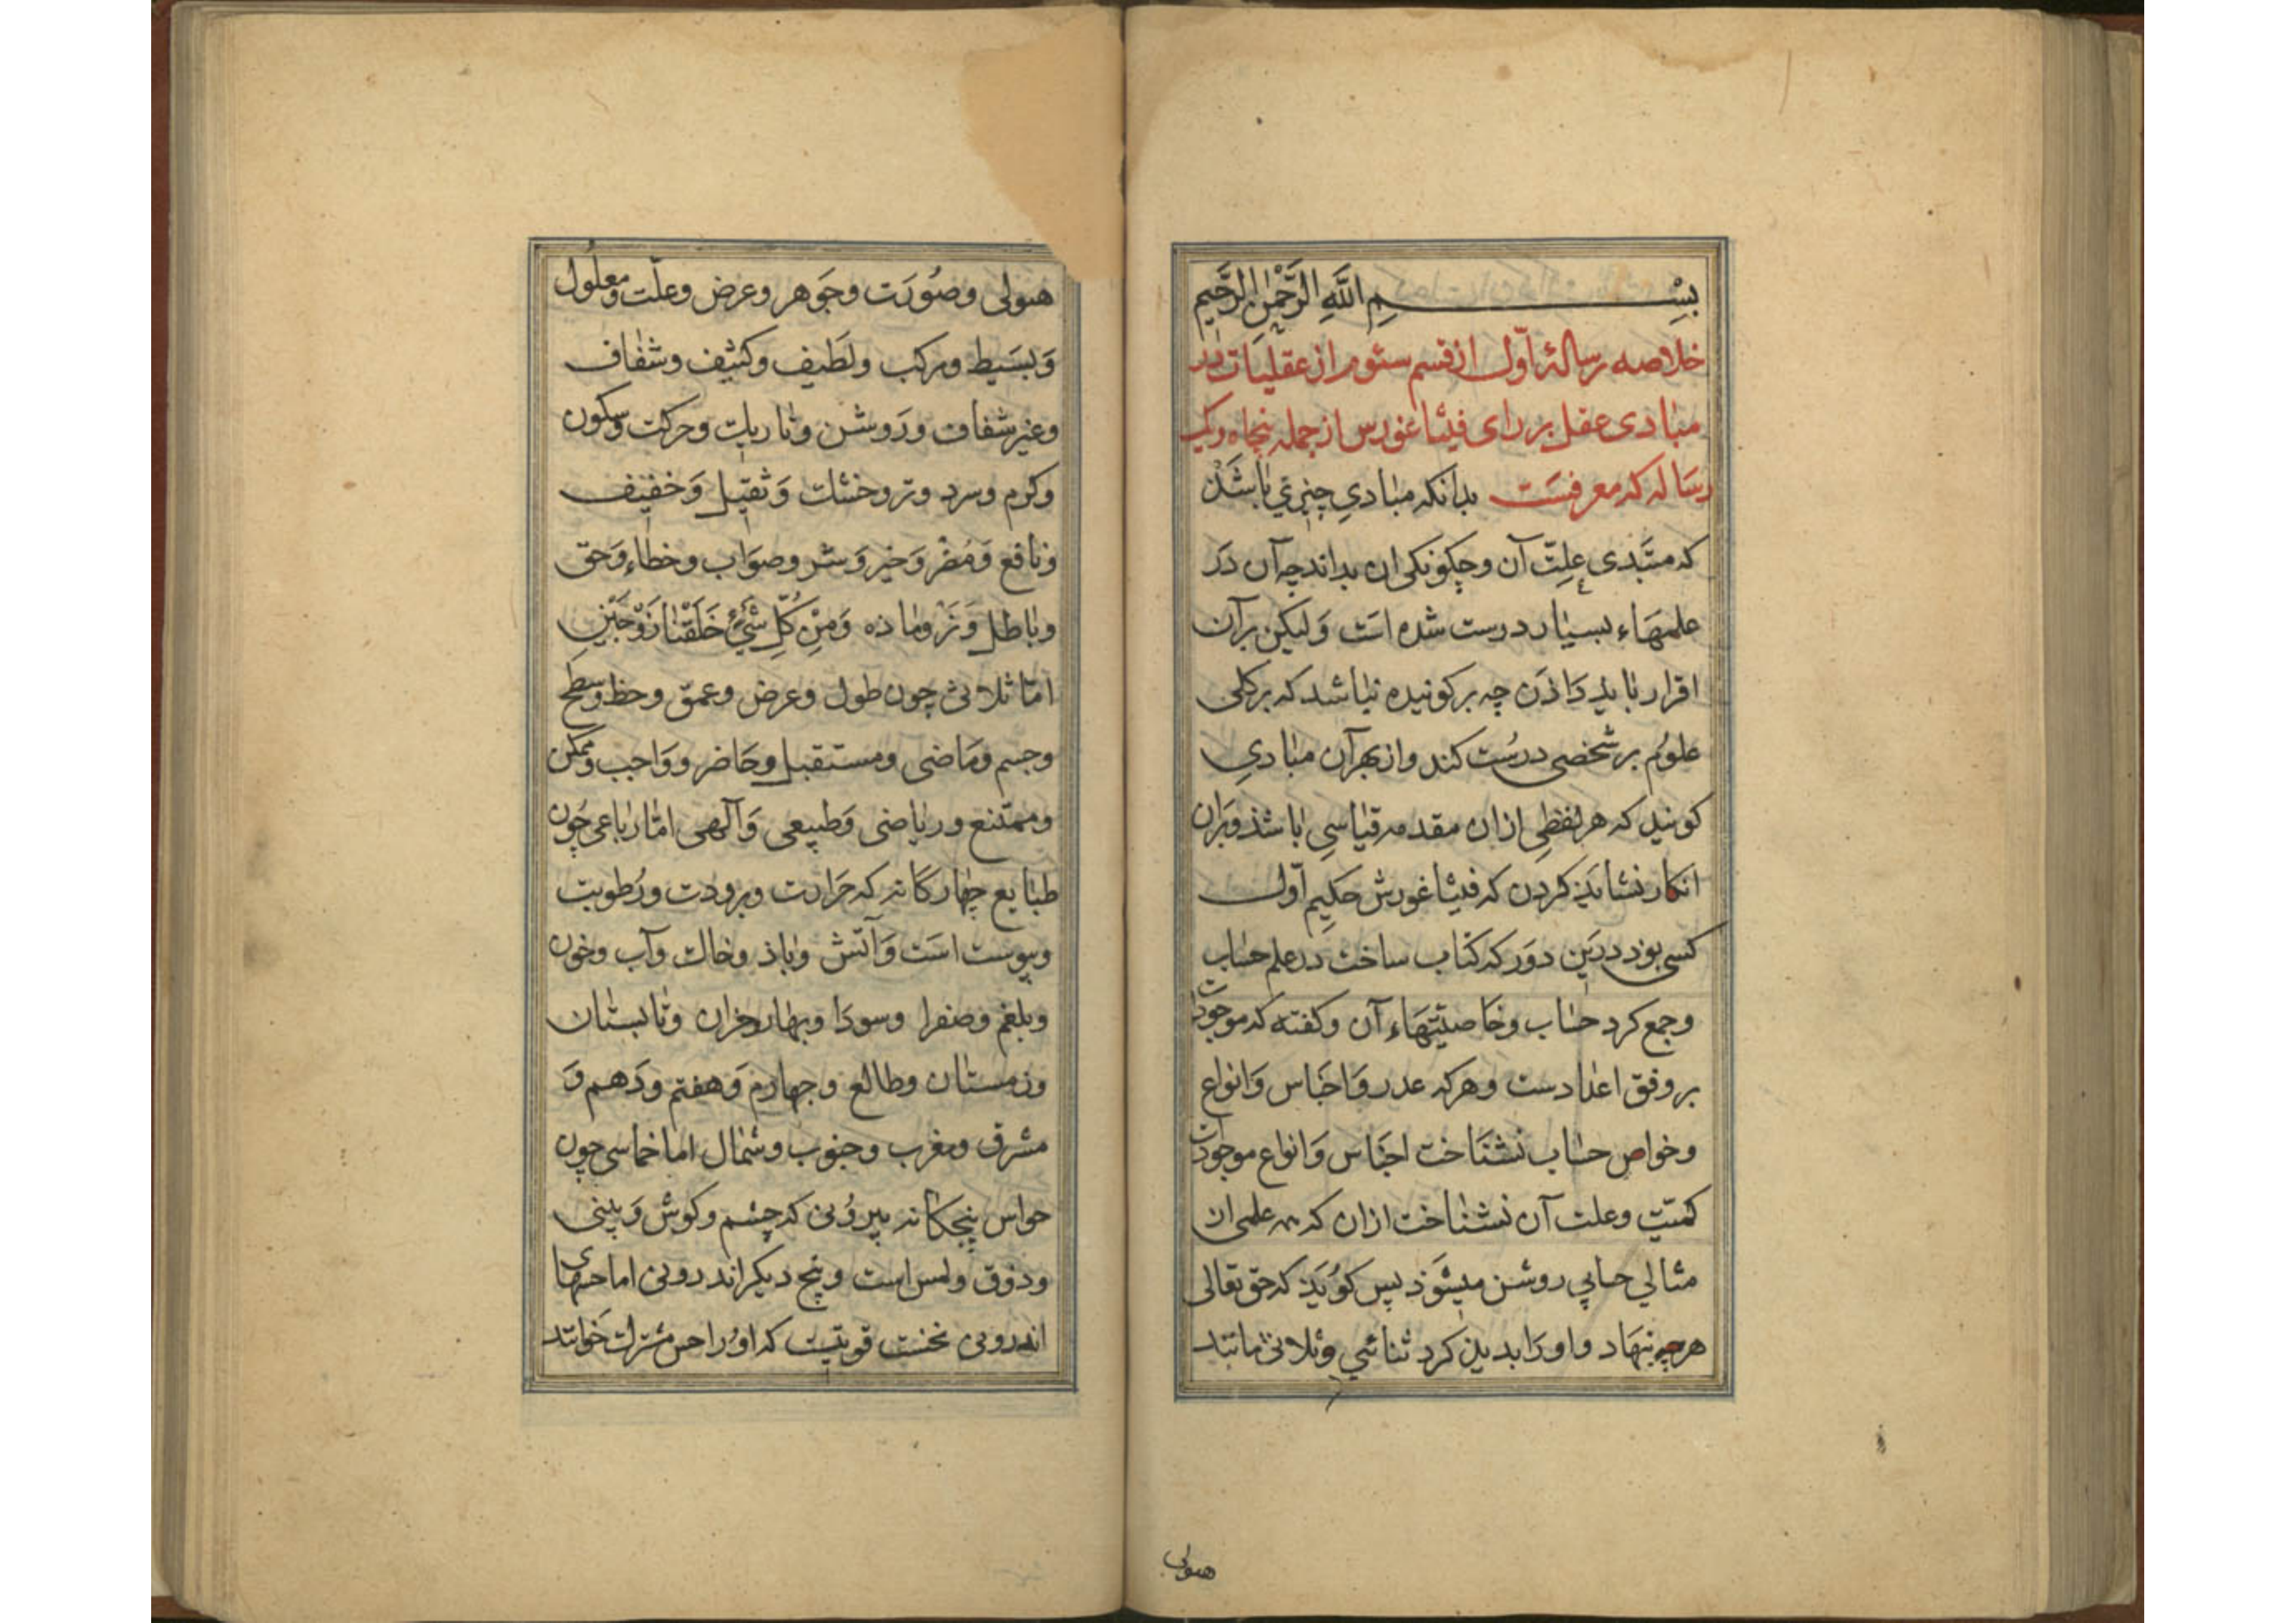 بِسْمِ اللَّهِ الرَّحْمٰنِ الرَّحِيمِ
خلاصه رسالهٔ اوّل از قسم سئوم از عقليات در
مبادی عقل بر رای فیثاغورس از جمله پنجاه و یک
رساله که معرفست بدانکه مبادیِ چیزی باشَذ
که مبتدی علّت آن و چکونکی ان بداند چه آن دَر
علمهاء بسیار درست شده است وَلیکن بر آن
اقرار بایذ دَاذن چه بر کونیده نباشد که بر کلی
علوُم بر شخصی درسُت کند و از بهر آن مبادیِ
کونید که هر لفظی ازان مقدمه قیاسی باشذ و بَران
انکار نشایَذ کردن که فیثاغورش حکیم اوّل
کسی بود درین دَور که کتاب ساخت در علم حساب
و جمع کرد حساب و خاصیّتهاء آن و کفته که موجودات
بر وفق اعدادست و هر که عدد وَ اجناس وَ انواع
و خواص حساب نشناخت اجناس وَ انواع موجودات
کمیّت و علت آن نشناخت ازان که علمی ان
مثالی حسابی روشن میشَوَذ پس کوُیَذ که حق تعالی
هرچه بنهاد و اورَا بدید کرد ثنائی و ثلاثی مانند
هیولی
هیولی و صُورَت و جَوهر و عرض و علّت و معلُول
وَ بسَیط و مرکب و لَطیف و کثیف و شفاف
و غیر شفاف و رَوشن و تاریک و حرکت و سکون
و کرم و سرد و تر و خشک وَ ثقیل وَ خفیف
و نافع وَ مُضر وَ خیر وَ شر و صوَاب و خطاء وَ حق
و باطل وَ نَر و ماذه وَمِنْ كُلِّ شَيْءٍ خَلَقْنَا زَوْجَيْنِ
امّا ثلاثی چون طول و عرض و عمق و خط و سطح
و جسم و مَاضی و مستقبل و حَاضر و وَاجب و ممکن
و ممتنع و ریاضی وَ طبیعی وَ آلهی امّا رباعی چُون
طبایع چهارکانه که حَرارت و برودت و رُطوبت
و یبوست است وَ آتش و باذ و خاک و آب و خون
و بلغم و صفرا و سودَا و بهار و خزان و تابستان
و زمستان و طالع و چهارم وَ هفتم و دَهم وَ
مشرق و مغرب و جنوب و شمال اما خماسی چون
حواس پنجکانه بیرُونی که چشم و کوش وَ بینی
و ذوق و لمس است و پنج دیکر اندرونی اما حسهای
اندرونی نخست قوتیست که اوُرا حس مشترک خوانند